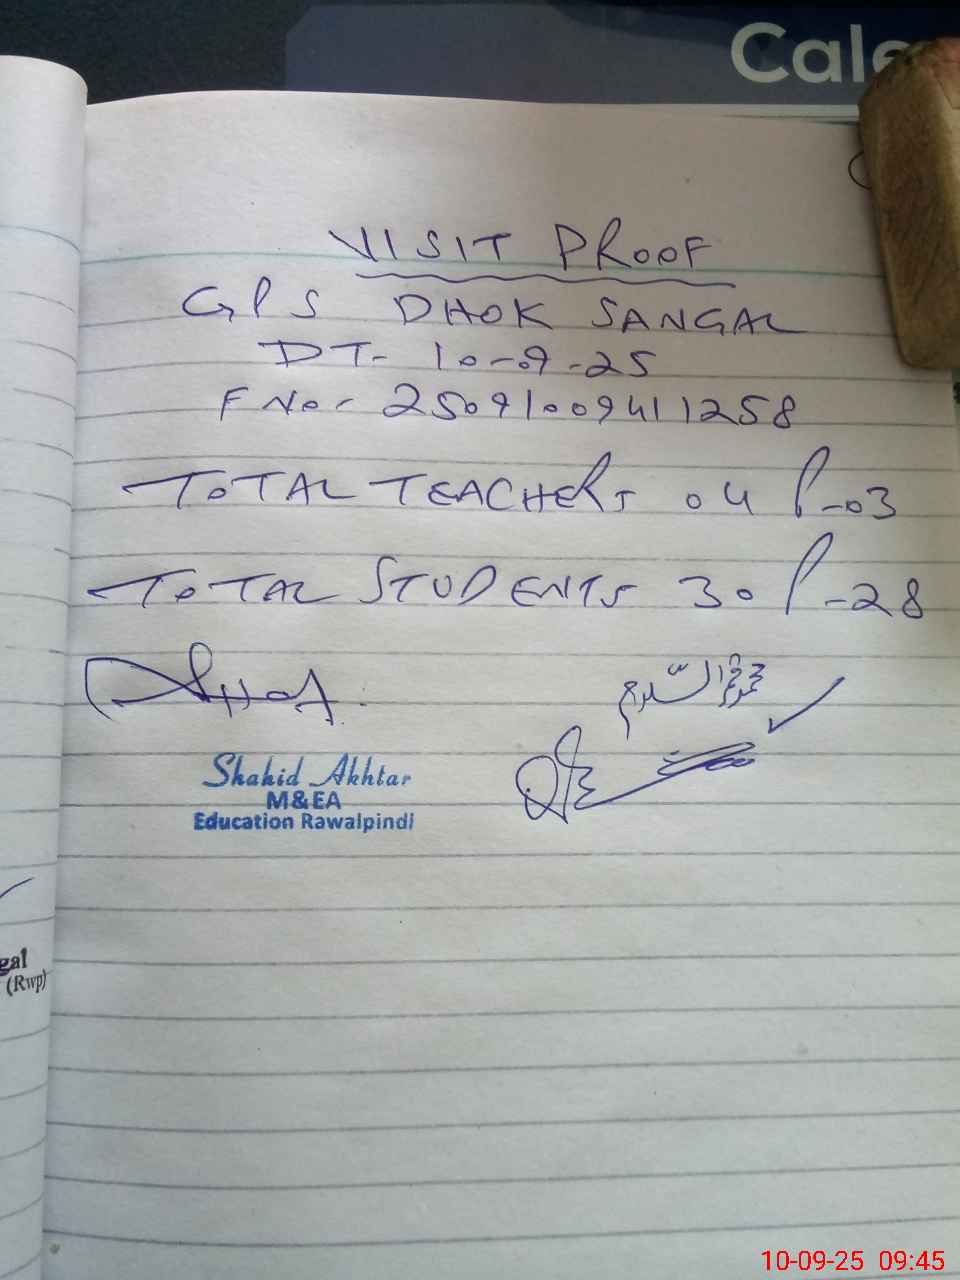 Cale
VISIT PROOF
GPS DHOK SANGAL
DT- 10-9-25
F No- 25091009411258
TOTAL TEACHERS 04 P-03
TOTAL STUDENTS 30 P-28
Shahid Akhtar
M&EA
Education Rawalpindi
gal
(Rwp)
10-09-25 09:45